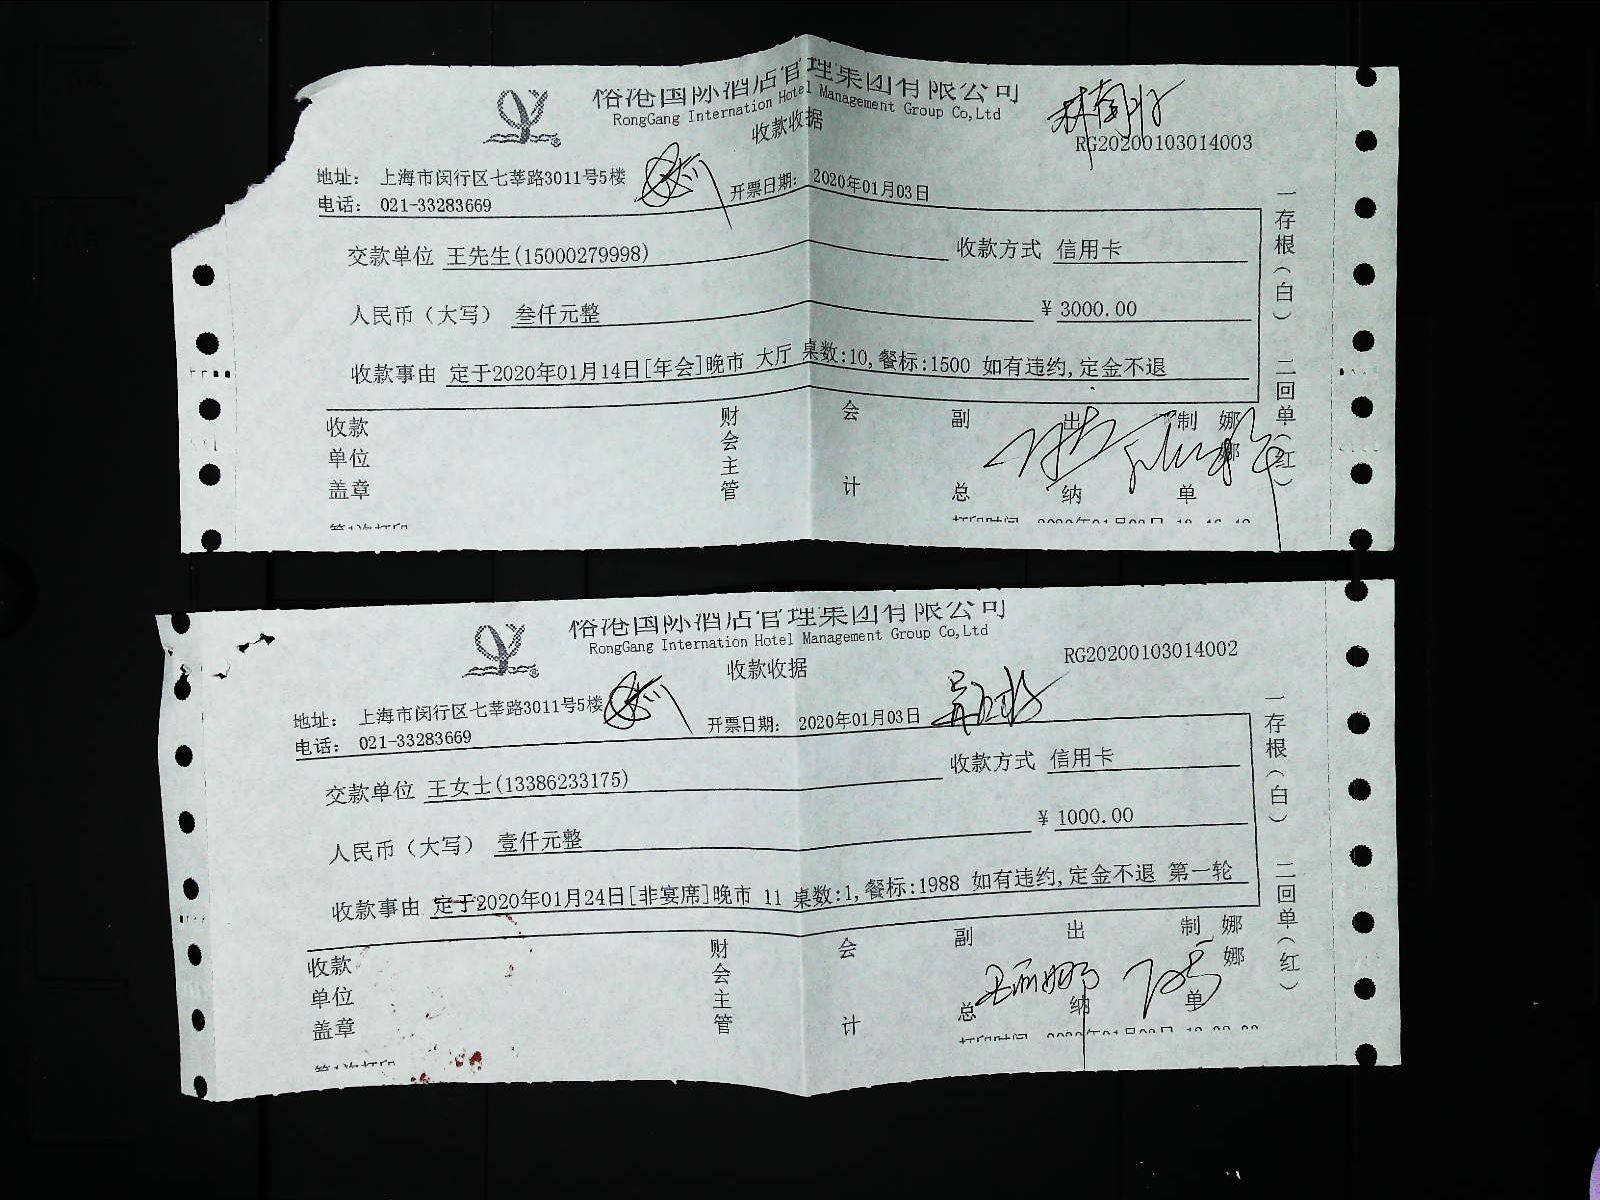 裕港国际酒店管理集团有限公司
RongGang Internation Hotel Management Group Co,Ltd
收款收据
RG20200103014003
地址： 上海市闵行区七莘路3011号5楼
电话： 021-33283669
开票日期： 2020年01月03日
交款单位 王先生(15000279998) 收款方式 信用卡
人民币（大写） 叁仟元整 ¥ 3000.00
收款事由 定于2020年01月14日[年会]晚市 大厅 桌数:10,餐标:1500 如有违约,定金不退
收款单位盖章 财会主管 会计 副总 出纳 制单 娜娜
一存根（白） 二回单（红）
第1次打印
裕港国际酒店管理集团有限公司
RongGang Internation Hotel Management Group Co,Ltd
收款收据
RG20200103014002
地址： 上海市闵行区七莘路3011号5楼
电话： 021-33283669
开票日期： 2020年01月03日
交款单位 王女士(13386233175) 收款方式 信用卡
人民币（大写） 壹仟元整 ¥ 1000.00
收款事由 定于2020年01月24日[非宴席]晚市 11 桌数:1,餐标:1988 如有违约,定金不退 第一轮
收款单位盖章 财会主管 会计 副总 出纳 制单 娜娜
一存根（白） 二回单（红）
第1次打印